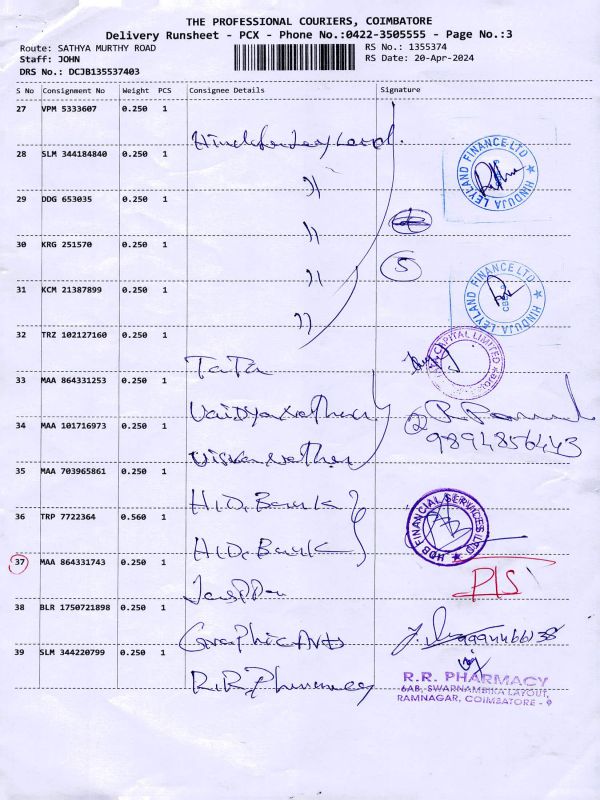 THE PROFESSIONAL COURIERS, COIMBATORE
Delivery Runsheet - PCX - Phone No.:0422-3505555 - Page No.:3
Route: SATHYA MURTHY ROAD
RS No.: 1355374
Staff: JOHN
RS Date: 20-Apr-2024
DRS No.: DCJB135537403
S No Consignment No Weight PCS Consignee Details Signature
27 VPM 5333607 0.250 1
28 SLM 344184840 0.250 1
HINDUJA LEYLAND FINANCE LTD
29 DDG 653035 0.250 1
30 KRG 251570 0.250 1
5
31 KCM 21387899 0.250 1
HINDUJA LEYLAND FINANCE LTD
32 TRZ 102127160 0.250 1
Tata
CAPITAL LIMITED
33 MAA 864331253 0.250 1
Vaidyanathan
34 MAA 101716973 0.250 1
9894856443
Viswanathan
35 MAA 703965861 0.250 1
H.D. Bank
36 TRP 7722364 0.560 1
H.D. Bank
HDB FINANCIAL SERVICES LTD
37 MAA 864331743 0.250 1
38 BLR 1750721898 0.250 1
Graphic Arts
39 SLM 344220799 0.250 1
R.R. Pharmacy
R.R. PHARMACY
6AB, SWARNAMBIKA LAYOUT,
RAMNAGAR, COIMBATORE - 9